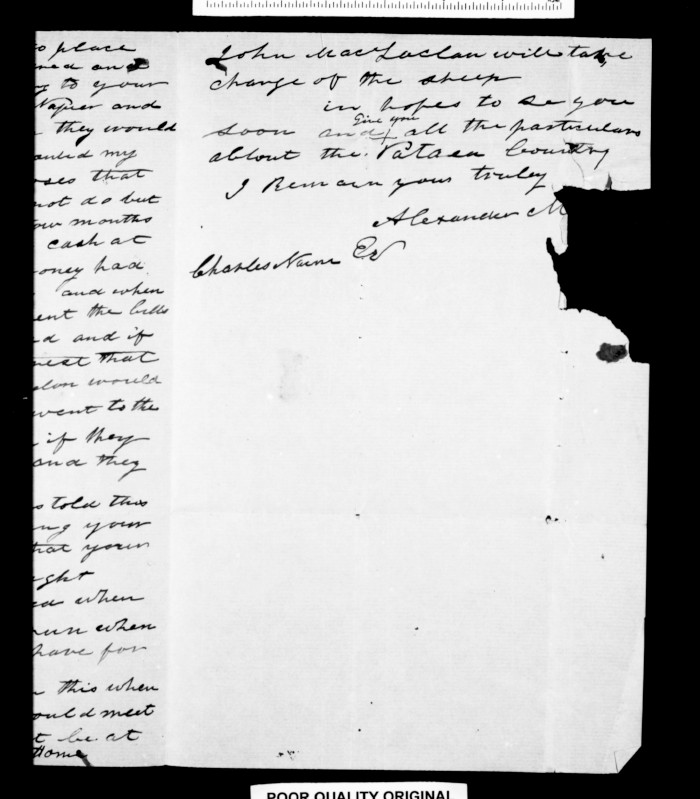 to place
and
to your
Napier and
they would
my
that
not do but
months
cash at
money had
and when
sent the bills
and if
that
would
went to the
if they
and they
told this
your
that your
when
when
have for
this when
would meet
be at
Home
John MacLaclan will take
charge of the sheep
in hopes to se you
soon and give you all the particulars
about the Pataea Country
I Remain your truly
Alexander M
Charles Nairn Es
POOR QUALITY ORIGINAL